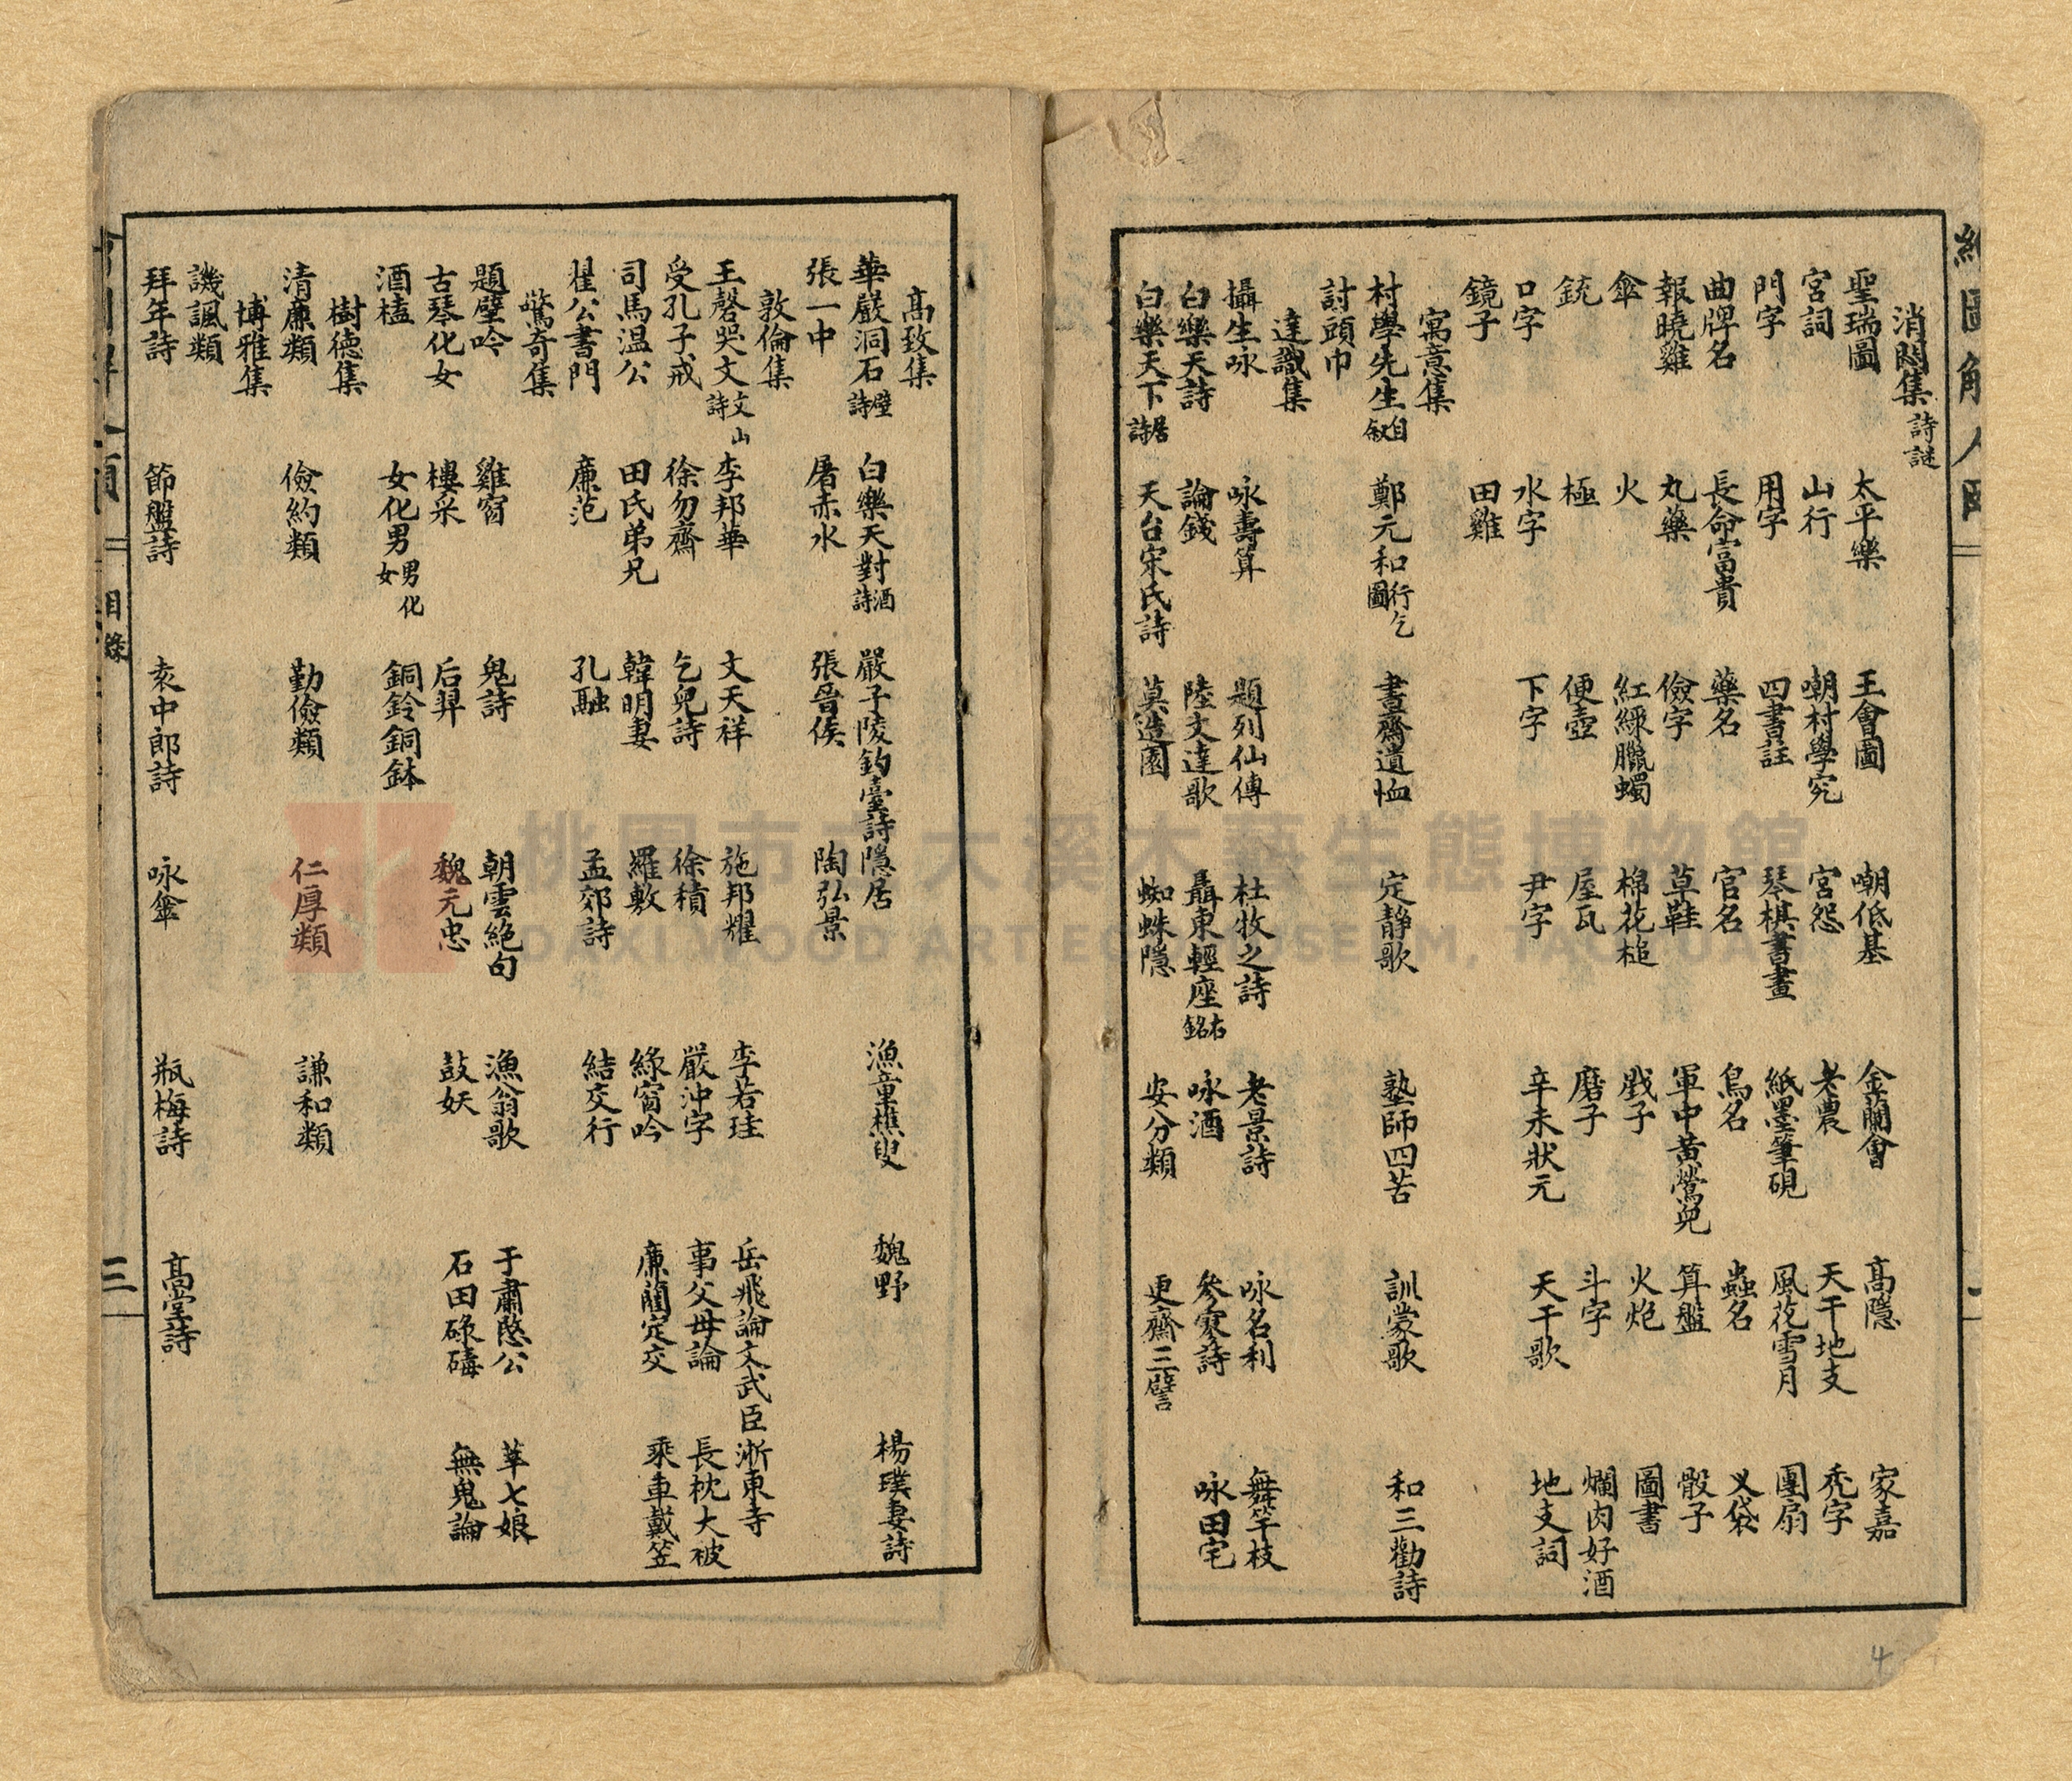 消悶集 詩謎
聖瑞圖 太平樂 王會圖 嘲低基 金蘭會 高隱 家嘉
宮詞 山行 嘲村學究 宮怨 老農 天干地支 禿字
門字 用字 四書註 琴棋書畫 紙墨筆硯 風花雪月 團扇
曲牌名 長命富貴 藥名 官名 鳥名 蟲名 叉袋
報曉雞 丸藥 儉字 草鞋 軍中黃鶯兒 算盤 骰子
傘 火 紅綠臘蠋 棉花槌 戲子 火炮 圖書
銃 極 便壺 屋瓦 磨子 斗字 爛肉好酒
口字 水字 下字 尹字 辛未狀元 天干歌 地支詞
鏡子 田雞
寓意集
村學先生自敘 鄭元和行乞圖 書齋遺恤 定靜歌 塾師四苦 訓蒙歌 和三勸詩
討頭巾
達識集
攝生咏 咏壽算 題列仙傳 杜牧之詩 老景詩 咏名利 舞竿枝
白樂天詩 論錢 陸文達歌 聶東輕座右銘 咏酒 參寥詩 咏田宅
白樂天下居詩 天台宋氏詩 莫造園 蜘蛛隱 安分類 更齋三譬
高致集
華嚴洞石壁詩 白樂天對酒詩 嚴子陵釣臺詩隱居 漁童樵叟 魏野 楊璞妻詩
張一中 屠赤水 張晉侯 陶弘景
敦倫集
王磬哭文文山詩 李邦華 文天祥 施邦耀 李若珪 岳飛論文武臣 淅東寺
受孔子戒 徐勿齋 乞兒詩 徐積 嚴沖字 事父母論 長枕大被
司馬温公 田氏弟兄 韓明妻 羅敷 綠窗吟 廉藺定交 乘車戴笠
翟公書門 廉范 孔融 孟郊詩 結交行
驚奇集
題壁吟 雞窗 鬼詩 朝雲絶句 漁翁歌 于肅愍公 莘七娘
古琴化女 樓采 后羿 魏元忠 鼓妖 石田碌碡 無鬼論
酒榼 女化男男化女 銅鈴銅鉢
樹德集
清廉類 儉約類 勤儉類 仁厚類 謙和類
博雅集
譏諷類
拜年詩 節盤詩 袁中郎詩 咏傘 瓶梅詩 高堂詩
目錄
三
4
桃園市立大溪木藝生態博物館
DAXI WOOD ART ECOMUSEUM, TAOYUAN